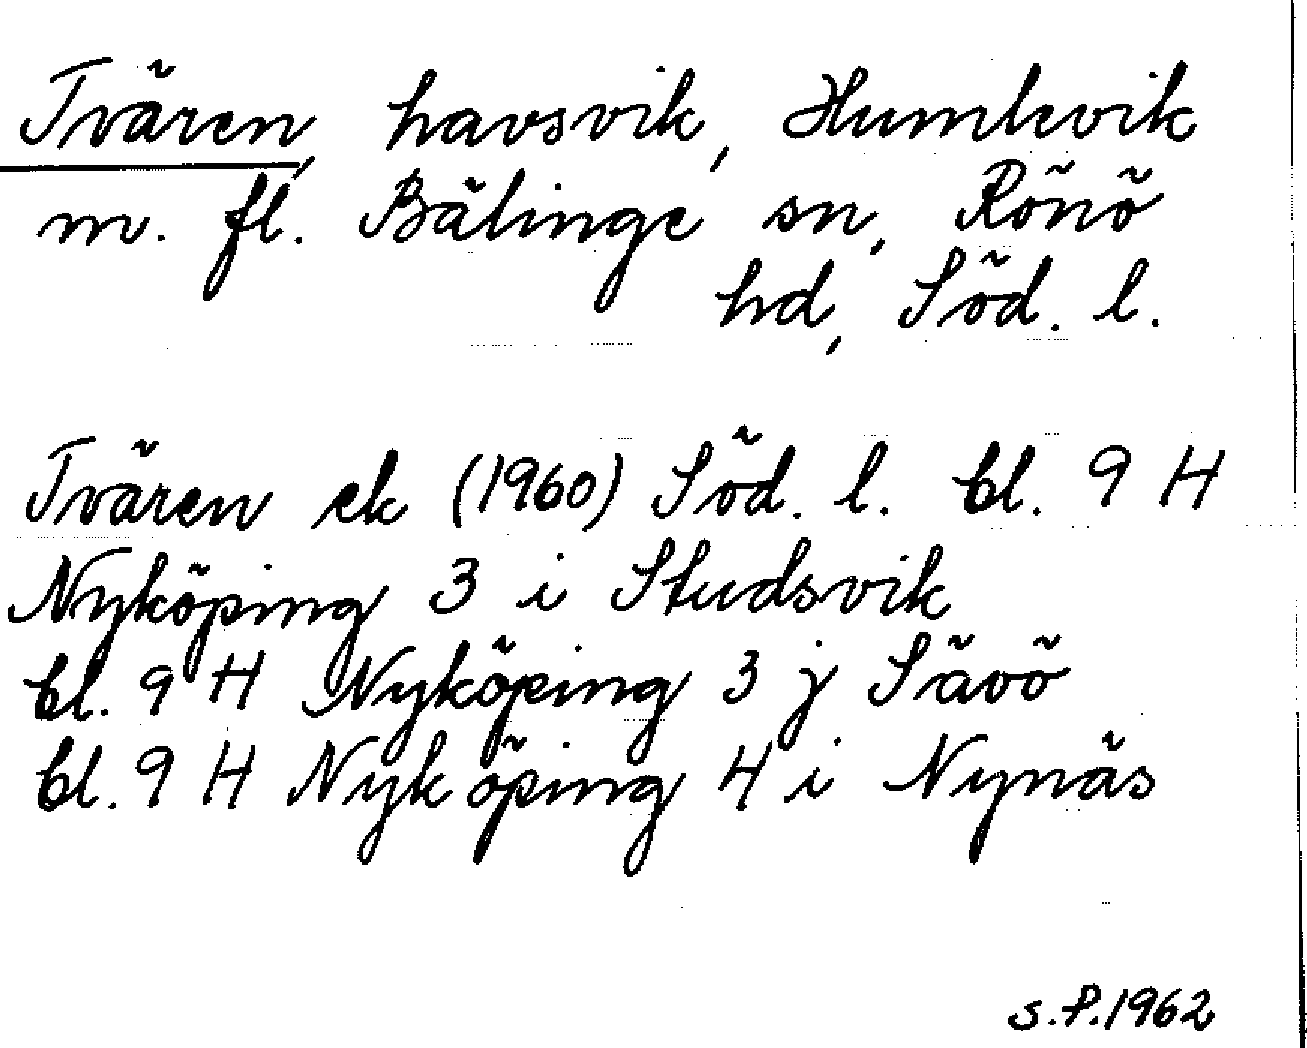 Tvären, havsvik, Humlevik
m. fl. Bälinge sn, Rönö
hd, Söd. l.
Tvären ek (1960) Söd. l. bl. 9 H
Nyköping 3 i Studsvik
bl. 9 H Nyköping 3 j Sävö
bl. 9 H Nyköping 4 i Nynäs
S.P. 1962